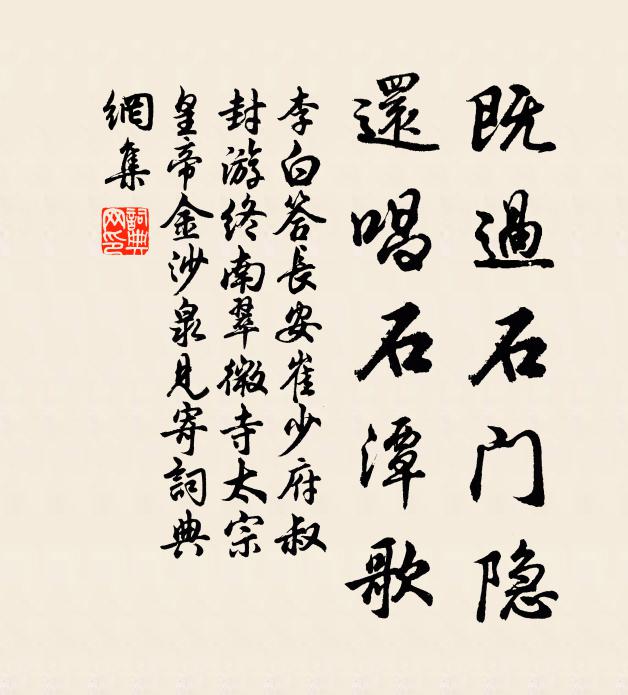 既過石门隐
還唱石潭歌
李白答長安崔少府叔
封游终南翠微寺太宗
皇帝金沙泉見寄詞典
網集
詞典
网印